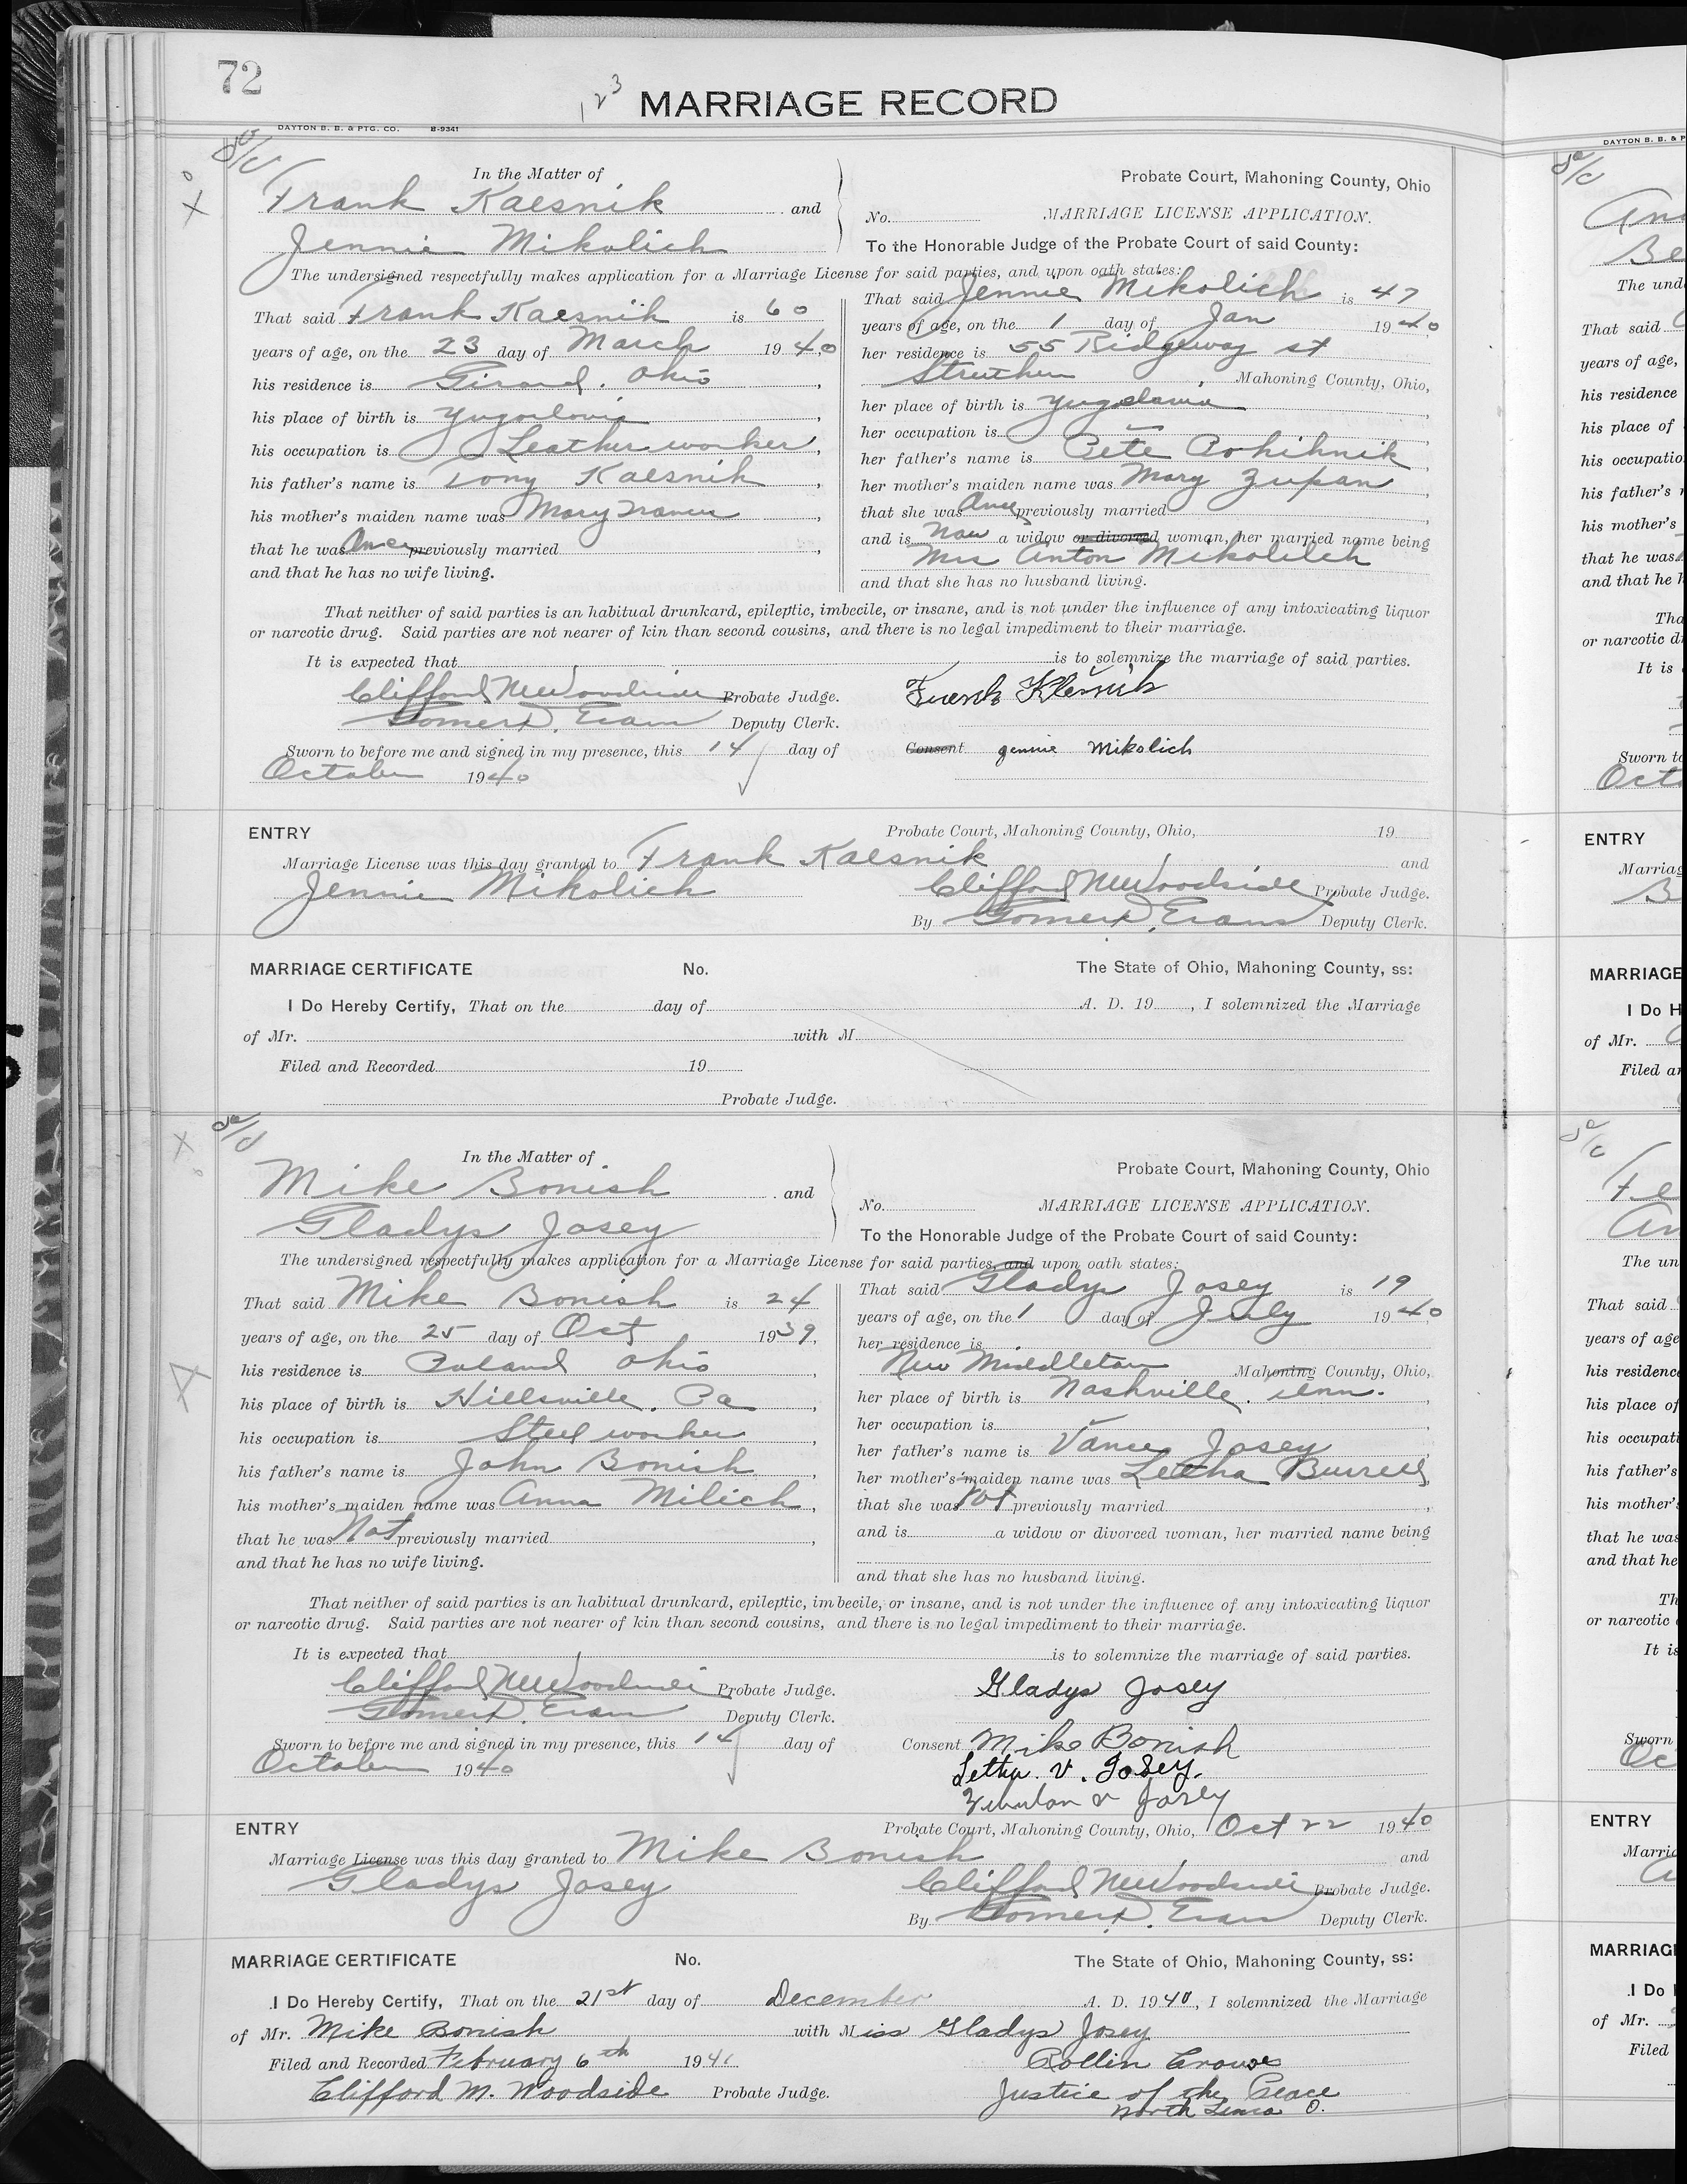 72
123
MARRIAGE RECORD
DAYTON B. B. & PTG. CO. B-9341
In the Matter of
Frank Kaesnik and
Jennie Mikolich
Probate Court, Mahoning County, Ohio
No. MARRIAGE LICENSE APPLICATION.
To the Honorable Judge of the Probate Court of said County:
The undersigned respectfully makes application for a Marriage License for said parties, and upon oath states:
That said Frank Kaesnik is 60
years of age, on the 23 day of March 1940
his residence is Girard. Ohio,
his place of birth is,
his occupation is Leather worker,
his father's name is Tony Kaesnik,
his mother's maiden name was Mary,
that he was Once previously married,
and that he has no wife living.
That said Jennie Mikolich is 47
years of age, on the 1 day of Jan 1940
her residence is 55 Ridgeway st
Struthers Mahoning County, Ohio,
her place of birth is,
her occupation is -,
her father's name is Pete,
her mother's maiden name was Mary Zupan,
that she was Once previously married,
and is Now a widow or divorced woman, her married name being
Mrs Anton Mikolich
and that she has no husband living.
That neither of said parties is an habitual drunkard, epileptic, imbecile, or insane, and is not under the influence of any intoxicating liquor
or narcotic drug. Said parties are not nearer of kin than second cousins, and there is no legal impediment to their marriage.
It is expected that is to solemnize the marriage of said parties.
Clifford M Woodside Probate Judge.
Gomer D. Evans Deputy Clerk.
Sworn to before me and signed in my presence, this 14 day of
October 1940
Consent Jennie Mikolich
ENTRY Probate Court, Mahoning County, Ohio, 19
Marriage License was this day granted to Frank Kaesnik and
Jennie Mikolich Clifford M Woodside Probate Judge.
By Gomer D. Evans Deputy Clerk.
MARRIAGE CERTIFICATE No. The State of Ohio, Mahoning County, ss:
I Do Hereby Certify, That on the day of A. D. 19, I solemnized the Marriage
of Mr. with M
Filed and Recorded 19
Probate Judge.
In the Matter of
Mike Bonish and
Gladys Josey
Probate Court, Mahoning County, Ohio
No. MARRIAGE LICENSE APPLICATION.
To the Honorable Judge of the Probate Court of said County:
The undersigned respectfully makes application for a Marriage License for said parties, and upon oath states:
That said Mike Bonish is 24
years of age, on the 25 day of Oct 1939,
his residence is Poland Ohio,
his place of birth is Hillsville. Pa,
his occupation is Steel worker,
his father's name is John Bonish,
his mother's maiden name was Anna Milich,
that he was Not previously married,
and that he has no wife living.
That said Gladys Josey is 19
years of age, on the 1 day of July 1940
her residence is
New Middleton Mahoning County, Ohio,
her place of birth is Nashville. Tenn.,
her occupation is -,
her father's name is Vance Josey,
her mother's maiden name was Letha Burrell,
that she was Not previously married,
and is a widow or divorced woman, her married name being
and that she has no husband living.
That neither of said parties is an habitual drunkard, epileptic, imbecile, or insane, and is not under the influence of any intoxicating liquor
or narcotic drug. Said parties are not nearer of kin than second cousins, and there is no legal impediment to their marriage.
It is expected that is to solemnize the marriage of said parties.
Clifford M Woodside Probate Judge.
Gomer D. Evans Deputy Clerk.
Sworn to before me and signed in my presence, this 14 day of
October 1940
Gladys Josey
Consent Mike Bonish
Letha. V. Josey.
Josey
ENTRY Probate Court, Mahoning County, Ohio, Oct 22 1940
Marriage License was this day granted to Mike Bonish and
Gladys Josey Clifford M Woodside Probate Judge.
By Gomer D. Evans Deputy Clerk.
MARRIAGE CERTIFICATE No. The State of Ohio, Mahoning County, ss:
I Do Hereby Certify, That on the 21st day of December A. D. 1940, I solemnized the Marriage
of Mr. Mike Bonish with Miss Gladys Josey
Filed and Recorded February 6th 1941 Rollin Crouse
Clifford M. Woodside Probate Judge. Justice of the Peace
North Lima O.